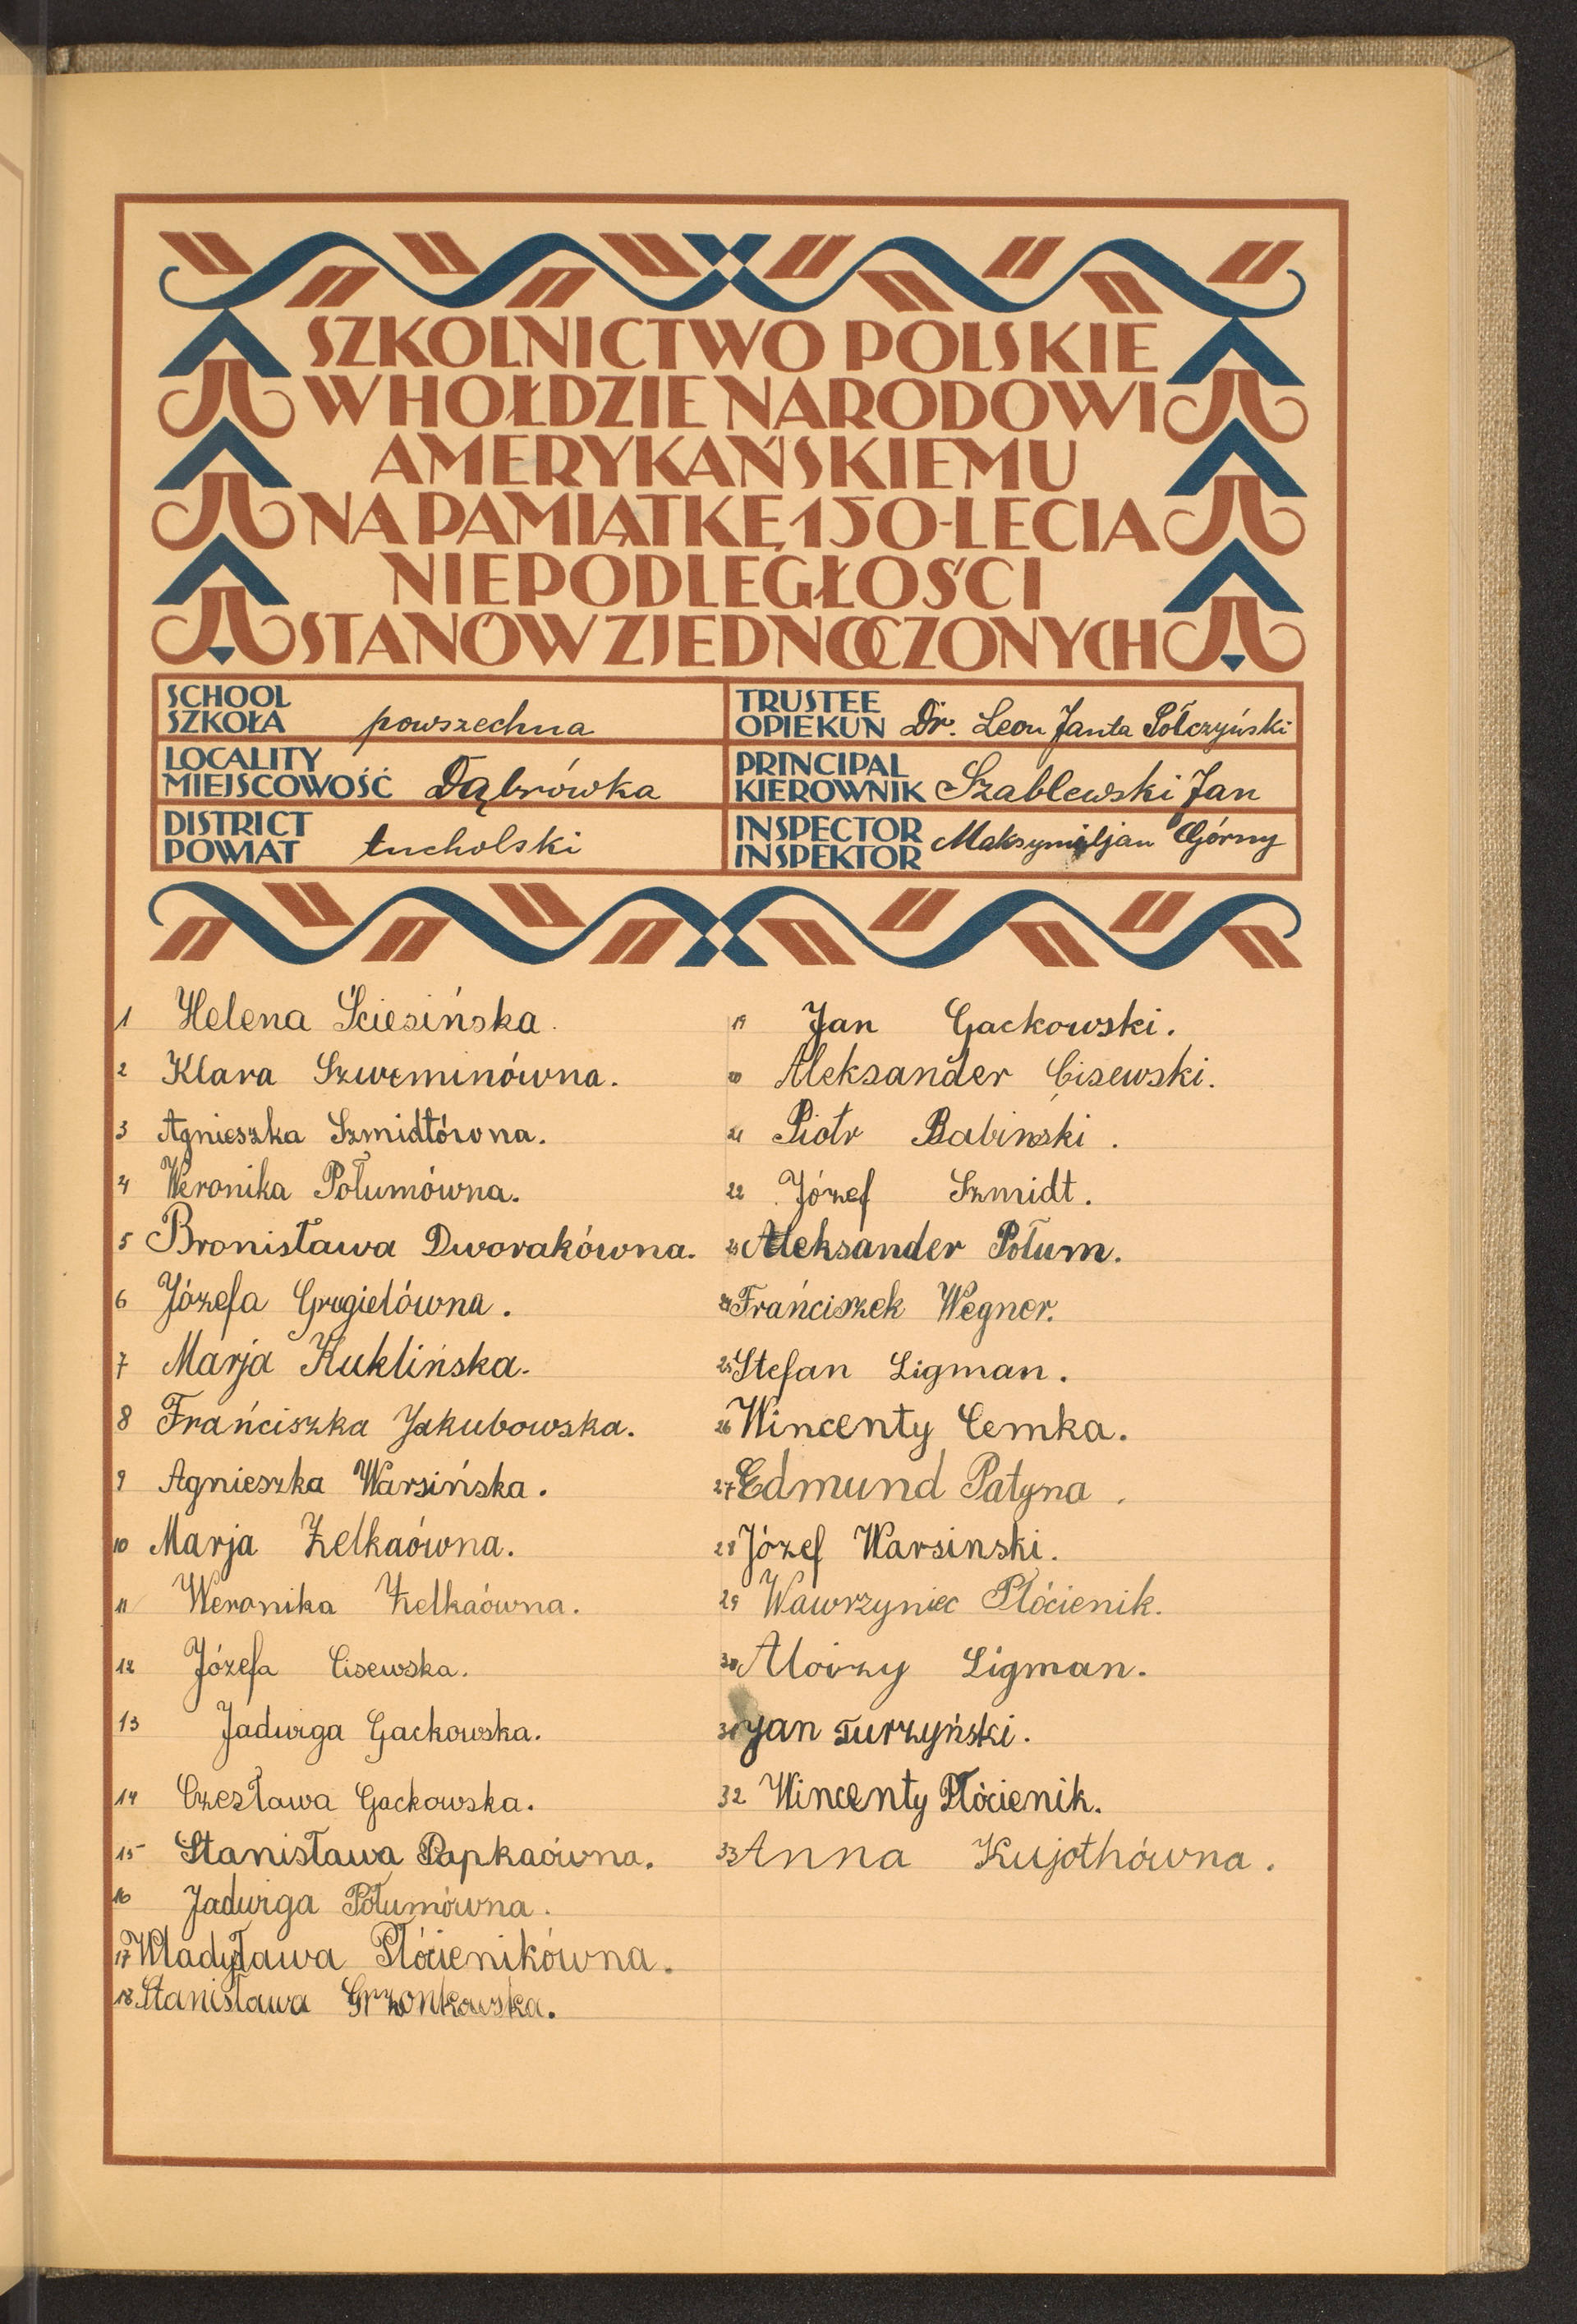 SZKOLNICTWO POLSKIE
W HOŁDZIE NARODOWI
AMERYKAŃSKIEMU
NA PAMIĄTKĘ 150-LECIA
NIEPODLEGŁOŚCI
STANÓW ZJEDNOCZONYCH
SCHOOL
SZKOŁA powszechna
TRUSTEE
OPIEKUN Dr. Leon Janta Połczyński
LOCALITY
MIEJSCOWOŚĆ Dąbrówka
PRINCIPAL
KIEROWNIK Szablewski Jan
DISTRICT
POWIAT tucholski
INSPECTOR
INSPEKTOR Maksymiljan Górny
1 Helena Ściesińska.
2 Klara Szweminówna.
3 Agnieszka Szmidtówna.
4 Weronika Połumówna.
5 Bronisława Dworakówna.
6 Józefa Grugielówna.
7 Marja Kuklińska.
8 Frańciszka Jakubowska.
9 Agnieszka Warsińska.
10 Marja Żelkaówna.
11 Weronika Żelkaówna.
12 Józefa Cisewska.
13 Jadwiga Gackowska.
14 Czesława Gackowska.
15 Stanisława Papkaówna.
16 Jadwiga Połumówna.
17 Władysława Płócienikówna.
18 Stanisława Grzonkowska.
19 Jan Gackowski.
20 Aleksander Cisewski.
21 Piotr Babinski.
22 Józef Szmidt.
23 Aleksander Połum.
24 Frańciszek Wegner.
25 Stefan Ligman.
26 Wincenty Cemka.
27 Edmund Patyna.
28 Józef Warsinski.
29 Wawrzyniec Płócienik.
30 Aloizy Ligman.
31 Jan Turzyński.
32 Wincenty Płócienik.
33 Anna Kujothówna.